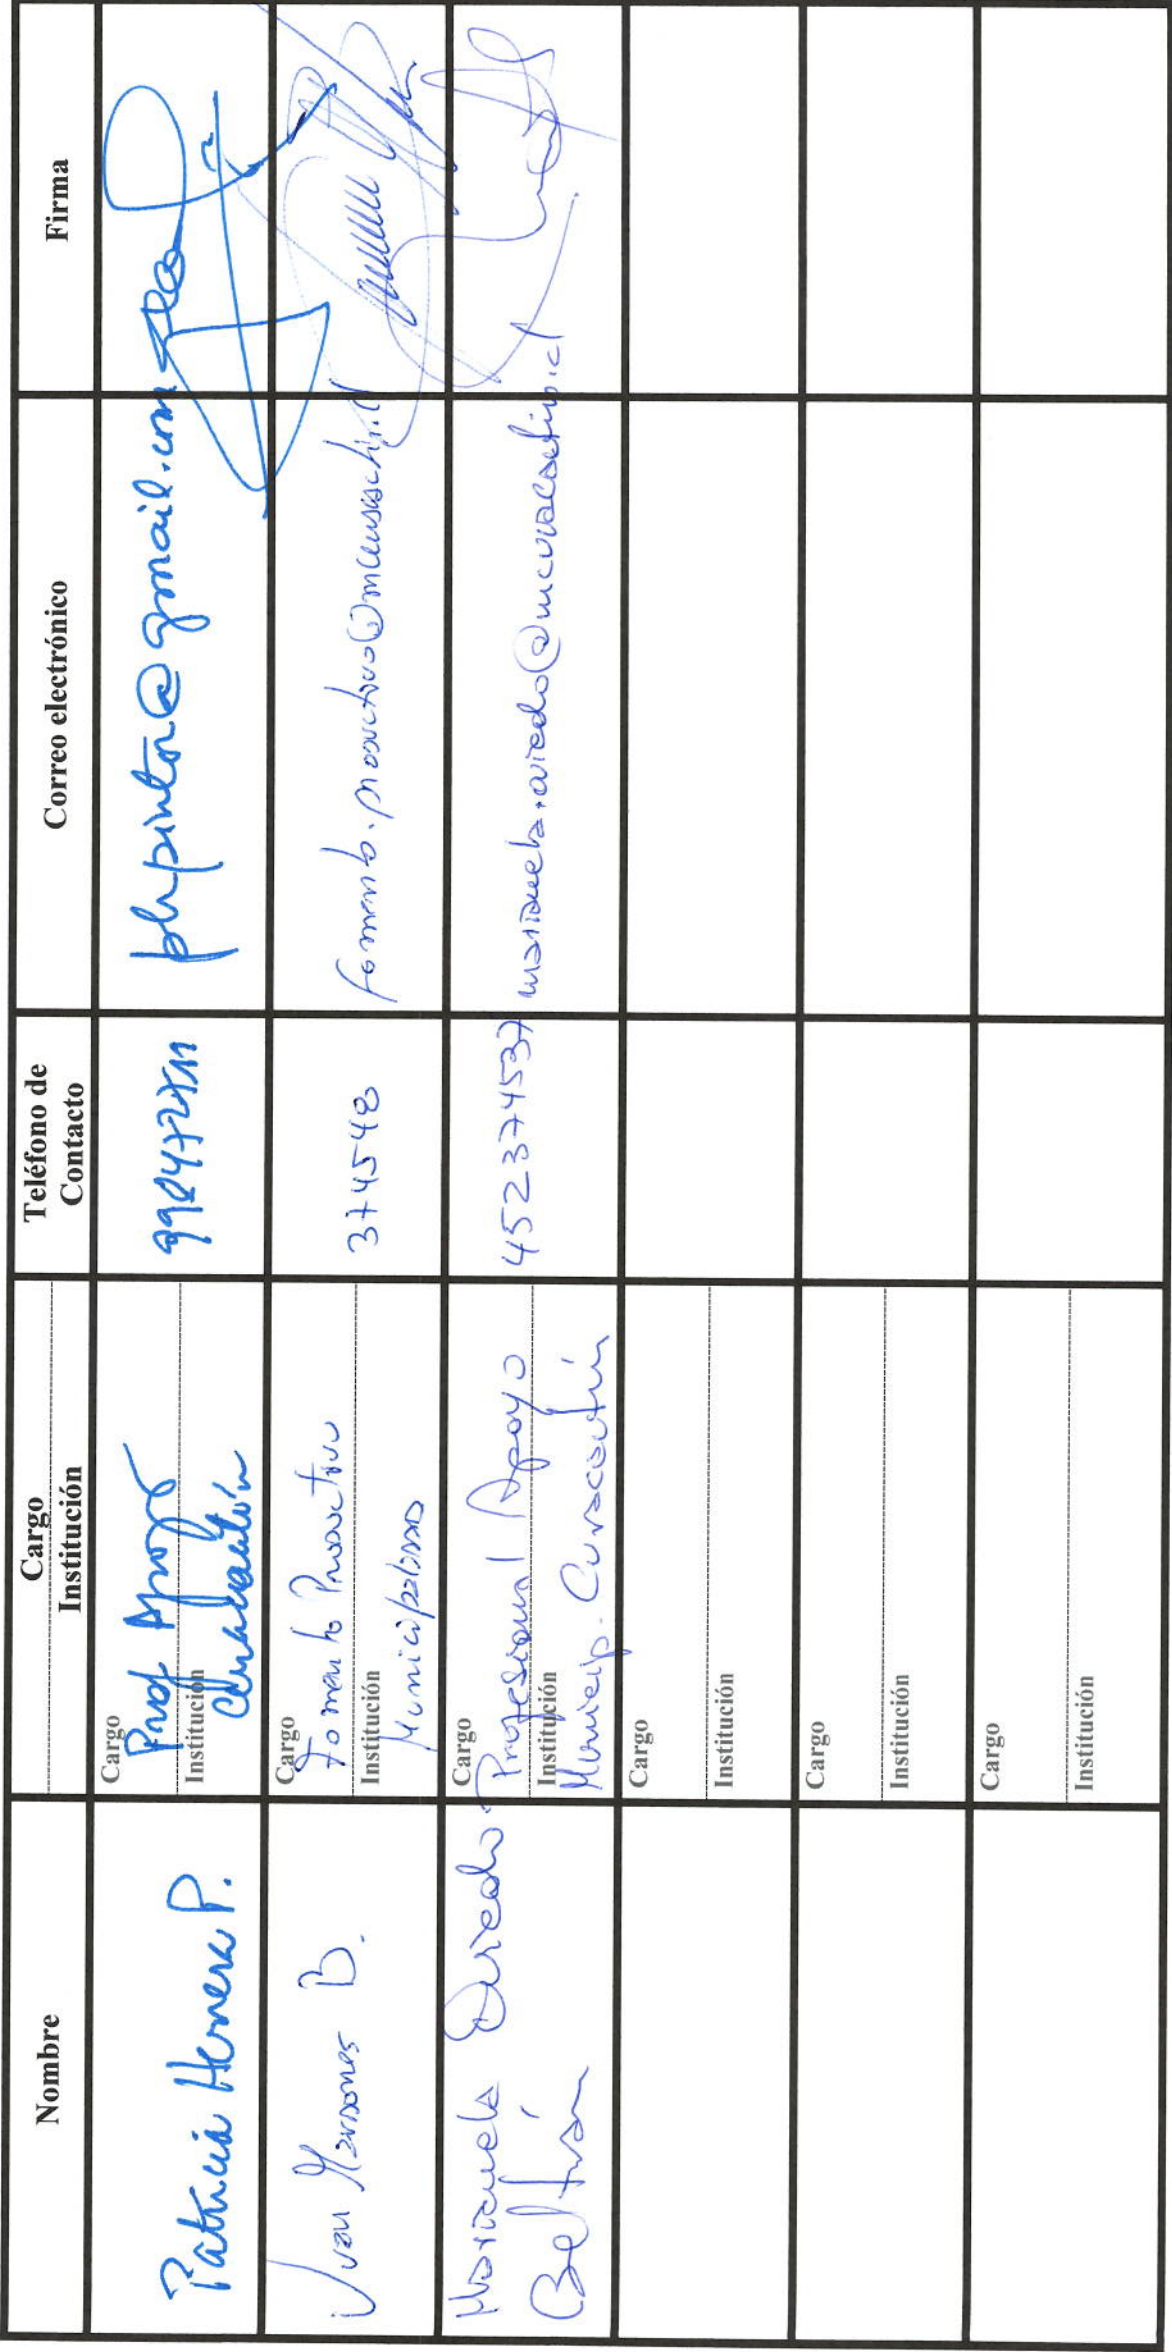 Nombre
Cargo
Institución
Teléfono de
Contacto
Correo electrónico
Firma
Patricia Herrera P.
Cargo
Prof Apoyo
Institución
Curacautín
phpinto@gmail.com
Juan B.
Cargo
Fomento Productivo
Institución
Municipalidad
3745548
Marianela Oviedo
Beltrán
Cargo
Profesional Apoyo
Institución
Municip. Curacautín
452374537
marianela.oviedo@mcuracautin.cl
Cargo
Institución
Cargo
Institución
Cargo
Institución